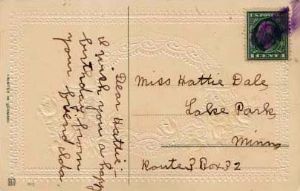 Dear Hattie:-
I wish you a happy
birthday from
your friend Ida.
Miss Hattie Dale
Lake Park,
Minn
Route 3 Box 32